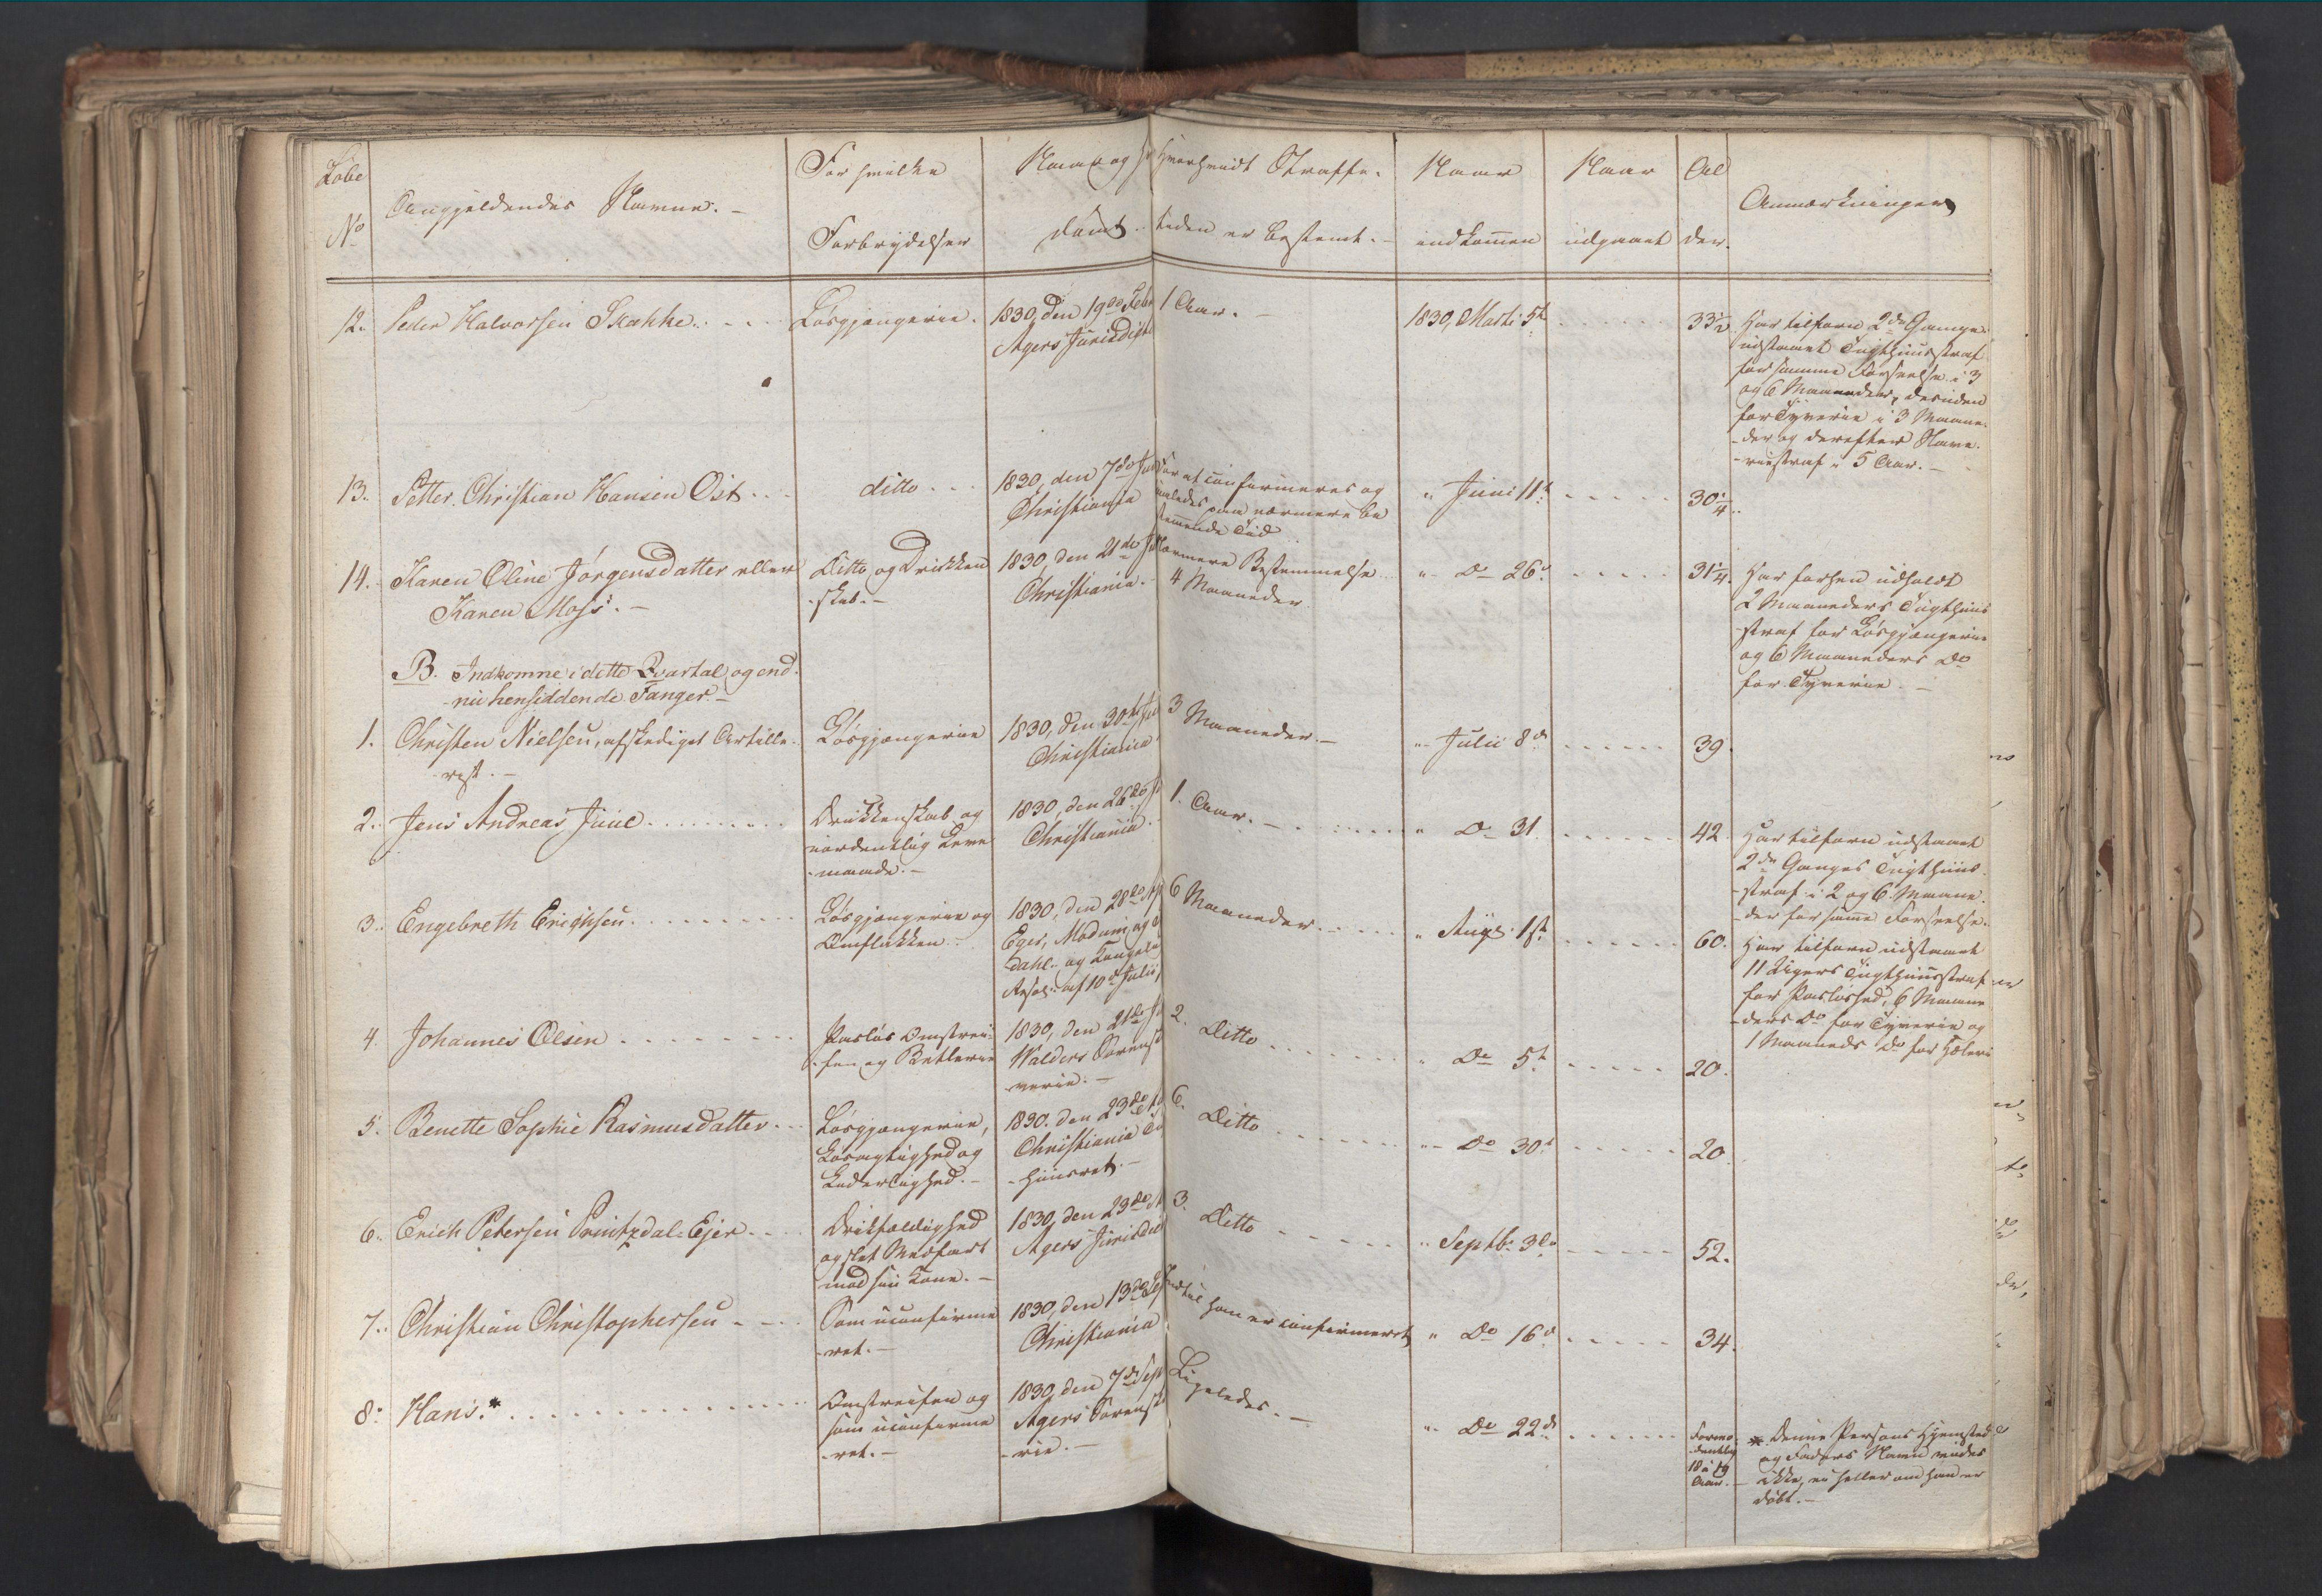 Løbe
No
Angjældendes Navne.
For hvilke
Forbrydelser
Naar og
dømt.
Hvorhvidt Straffe-
tiden er bestemt.
Naar
indkommen
Naar
udgaaet
Al
der.
Anmærkninger
12. Peder Halvorsen Skakke
Løsgjængerie.
1830, den 19de Febr
Agers Jurisdict
1 Aar.
1830, Marti 5te
33½
Har tilforn 2de Gange
udstaaet Tugthuusstraf
for samme Forseelse i 3
og 6 Maaneder, desuden
for Tyverie i 3 Maane-
-der og derefter Slave-
-riestraf i 5 Aar.
13. Petter Christian Hansen Ost
ditto
1830, den 7de Jun
Christiania
For at confirmeres og
paa nærmere be
stemmende Tid
" Juni 11te
30¼
14. Karen Oline Jörgensdatter eller
Karen Moss.
Ditto og Drikken
-skab.
1830, den 21de
Christiania.
Nærmere Bestemmelse
4 Maaneder
" Do 26de
31¼
Har forhen udholdt
2 Maaneders Tugthuus
straf for Løsgjængerie
og 6 Maaneders Do
for Tyverie.
B. Indkomne i dette Qvartal og end-
-nu hensiddende Fanger.
1. Christen Nielsen, afskediget Artille-
-rist.
Løsgjængerie
1830, den 30te
Christiania
3 Maaneder.
" Julii 8de
39
2. Jens Andreas Juul
Drikkenskab og
uordentlig Leve
-maade.
1830, den 26de
Christiania
1. Aar.
" Do 31.
42.
Har tilforn udstaaet
2de Ganges Tugthuus-
-straf i 2 og 6 Maane-
-der for samme Forseelse.
3. Engebreth Erichsen
Løsgjængerie og
Omflakken.
1830, den 28de
Eger, Modum og
dahl. og Kongelig
Resol. af 10de Julii
6 Maaneder
" Aug. 1ste
60.
Har tilforn udstaaet
11 Ugers Tugthuusstraf
for Pasløshed, 6 Maane
-ders Do for Tyverie og
1 Maaneds Do for Hæleri
4. Johannes Olsen
Pasløs Omstrei-
-fen og Betlerie
1830, den 21de
Walders Sorensk
-verie.
2. Ditto
" Do 5te
20.
5. Benette Sophie Rasmusdatter
Løsgjængerie,
Løsagtighed og
Liderlighed.
1830. den 23de
Christiania
-huusret.
6. Ditto
" Do 30te
20
6. Erich Petersen Printzdal-Ejer
Drikfældighed
og slet Medfart
mod sin Kone.
1830, den 23de
Agers Jurisdic
3. Ditto
" Septbr 3de
52.
7. Christian Christophersen
Som uconfirme
-ret.
1830, den 13de Sep
Christiania
Indtil han er confirmeret
" Do 16de
34.
8. Hans.*
Omstreifen og
som uconfirme
-ret.
1830, den 7de Sept
Agers Sorenskr
-rie.
Ligeledes.
" Do 22de
Formo-
-dentlig
18 à 19
Aar.
* Denne Persons Hjemsted
og Faders Navn vides
ikke, ei heller om han er
døbt.